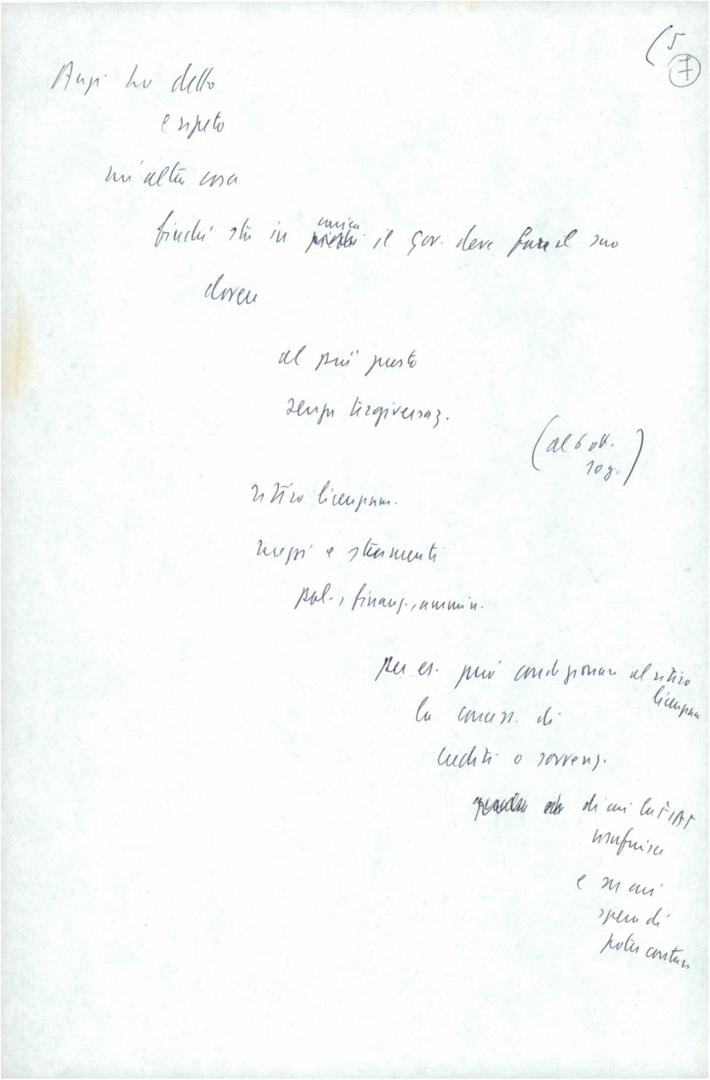 (5
7
Anzi ho detto
e ripeto
un'altra cosa
finché sta in carica il gov. deve fare il suo
dovere
al più presto
senza tergiversaz.
(al 6 ott.
10 g.)
ritiro licenziam.
mezzi e strumenti
pol., finanz., ammin.
per es. può condizionare al ritiro
licenziam
la concess. di
crediti o sovvenz.
di cui la FIAT
usufruisce
e su cui
spera di
poter contare